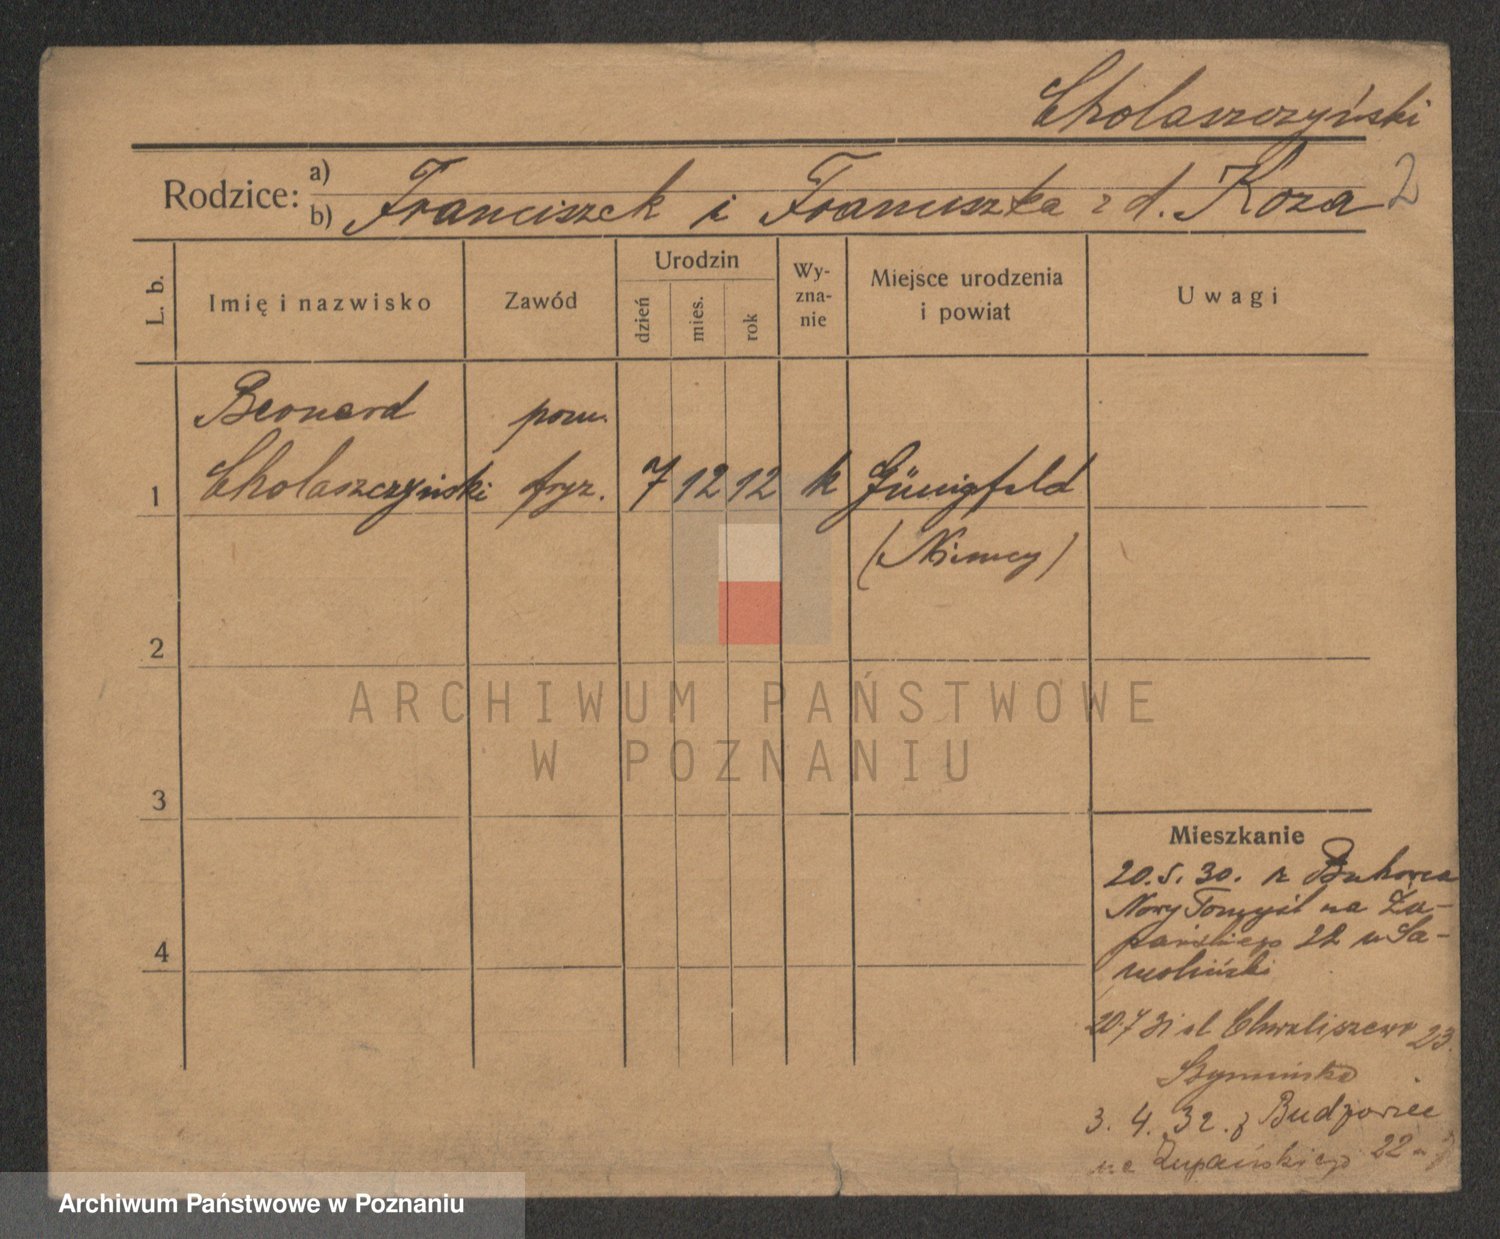 Cholaszczyński
Rodzice: a)
b) Franciszek i Franciszka z d. Koza 2
L. b.
Imię i nazwisko
Zawód
Urodzin
dzień
mies.
rok
Wy-
zna-
nie
Miejsce urodzenia
i powiat
Uwagi
Bernard pom.
1 Cholaszczyński fryz. 7 12 12 k Günigfeld
(Niemcy)
2
3
4
ARCHIWUM PAŃSTWOWE
W POZNANIU
Mieszkanie
20.5.30. z Bukowca
Nowy Tomyśl na Żu-
pańskiego 22 u
20.7 31 ul Chwaliszewo 23.
3. 4. 32. z
na Żupańskiego 22
Archiwum Państwowe w Poznaniu